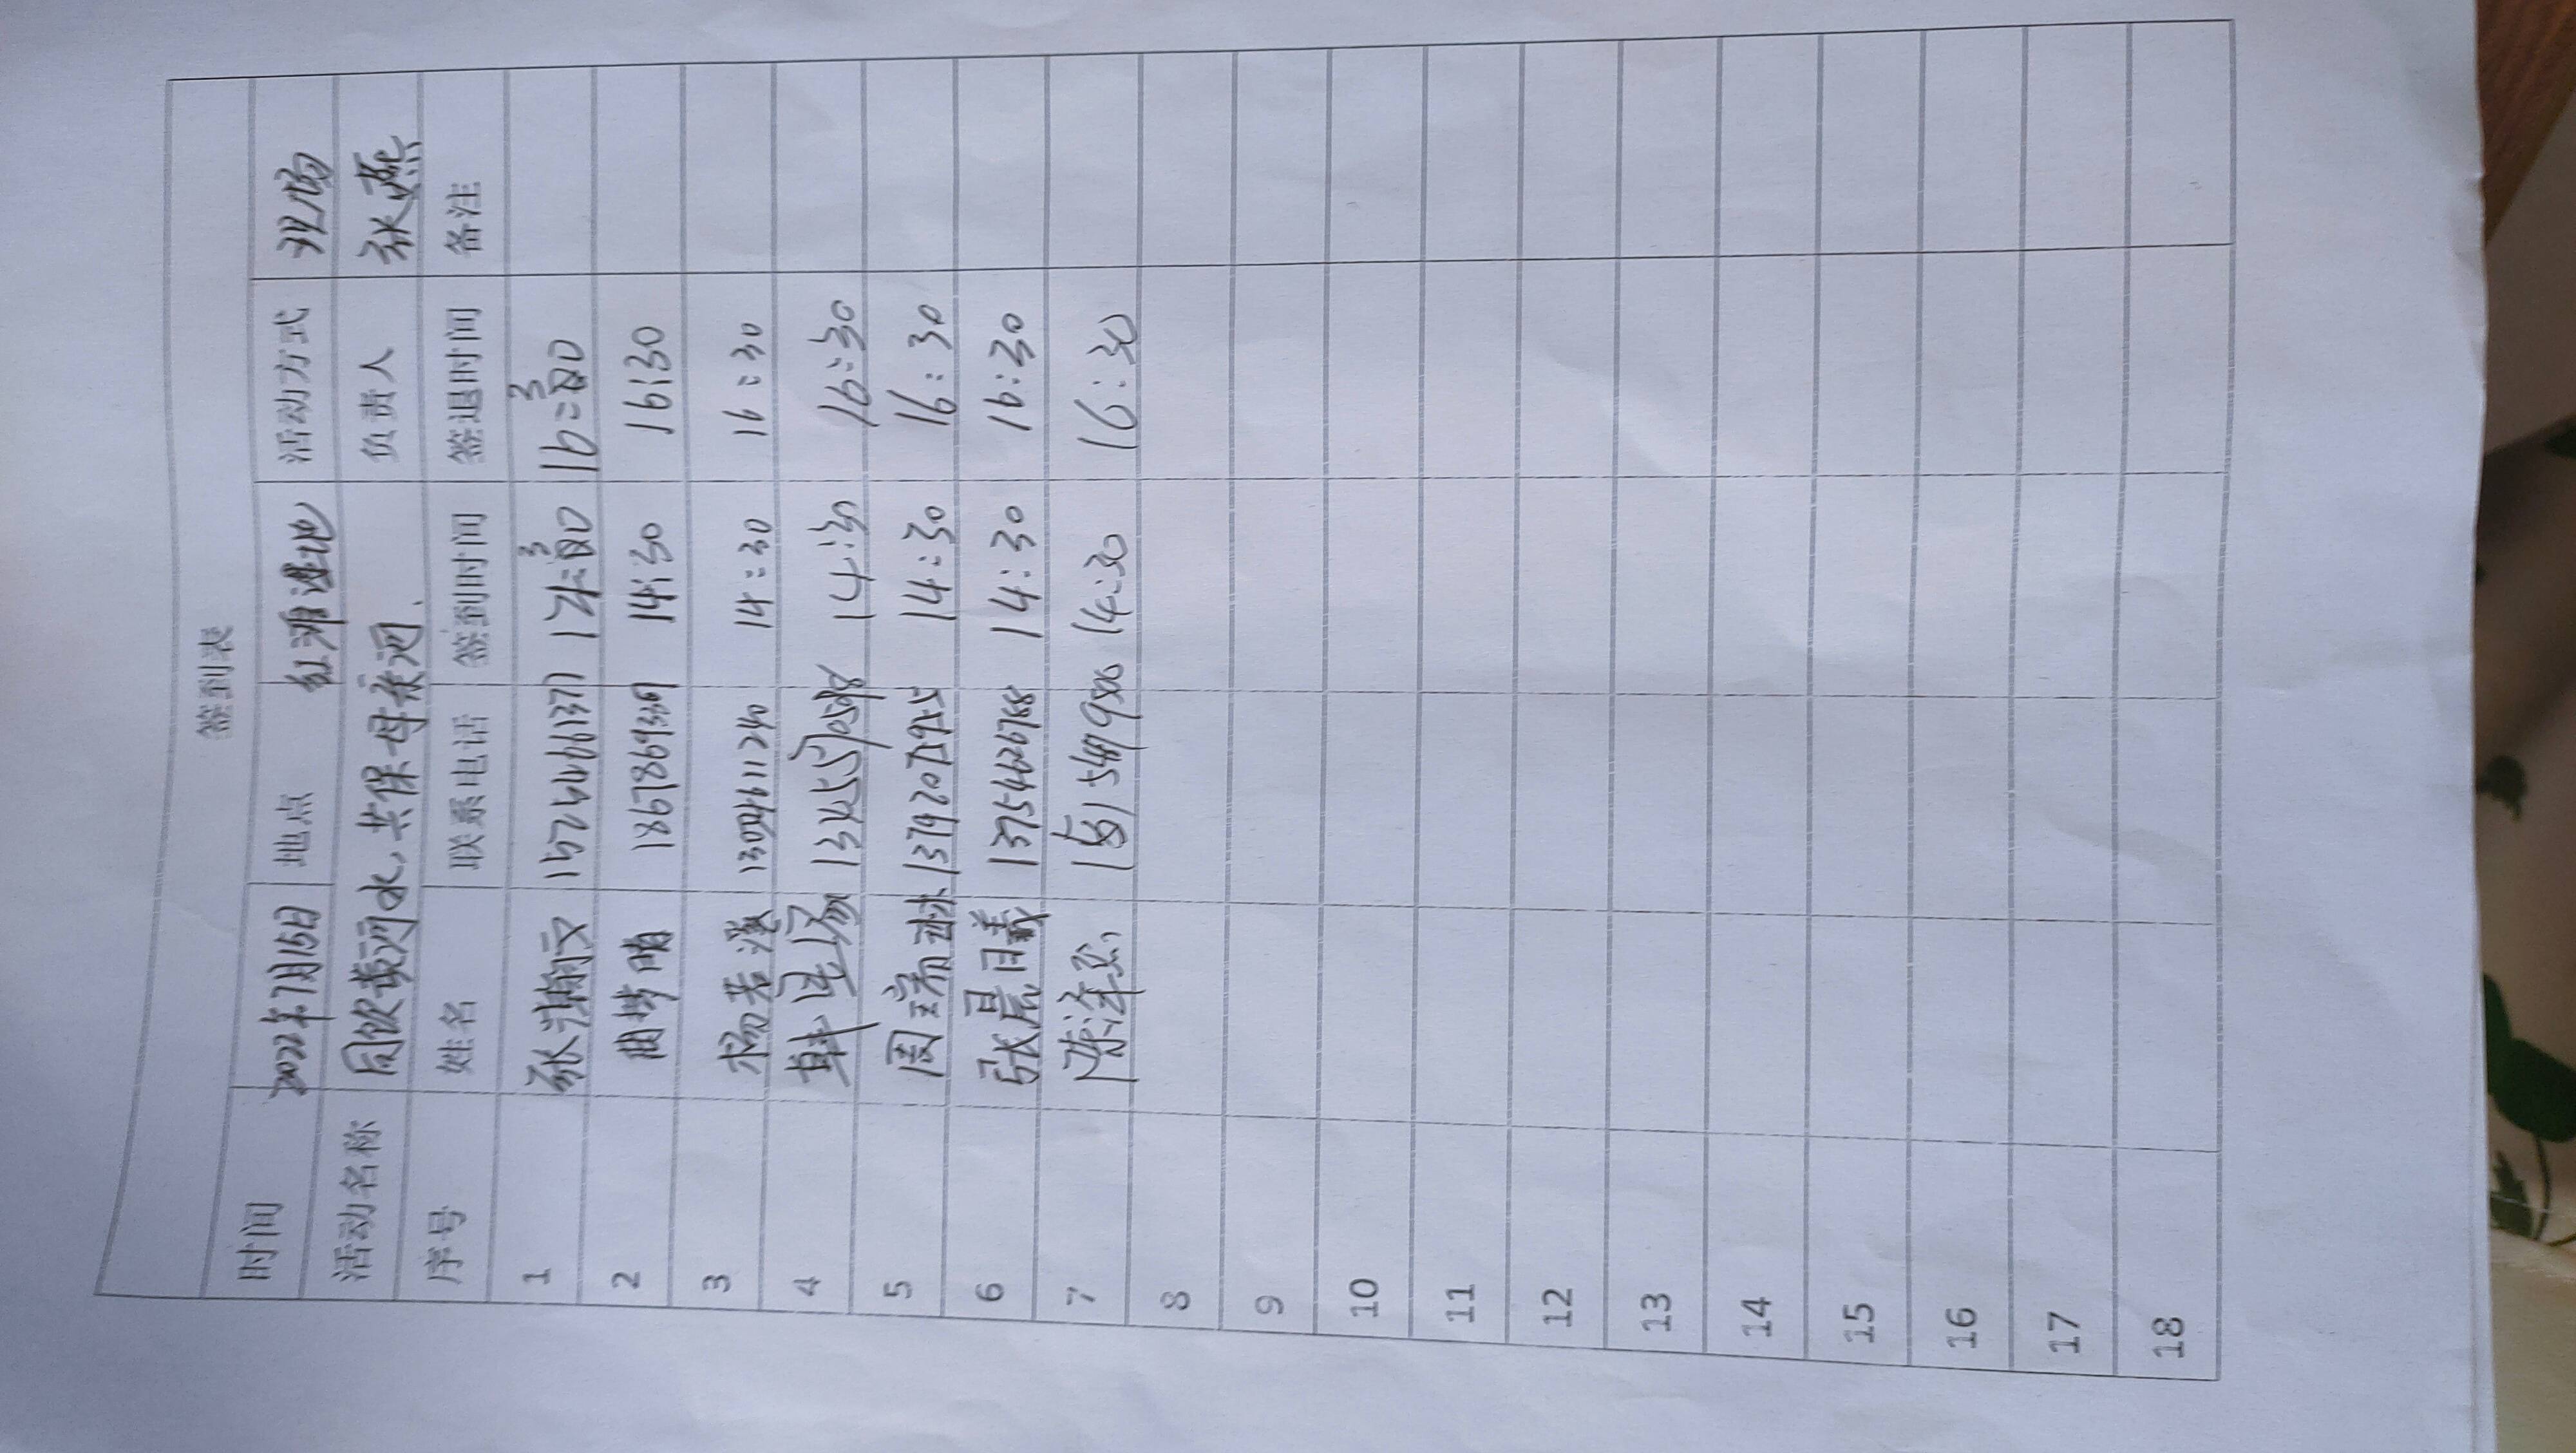 签到表
时间 2022年7月15日 地点 红滩湿地 活动方式 现场
活动名称 同饮黄河水，共保母亲河. 负责人 张燕
序号 姓名 联系电话 签到时间 签退时间 备注
1 张瀚文 15724661377 14:30 16:30
2 曲梦晴 14:30 16:30
3 杨若溪 13094611240 14:30 16:30
4 14:30 16:30
5 周 14:30 16:30
6 张晨曦 13754626788 14:30 16:30
7 陈泽 14:30 16:30
8
9
10
11
12
13
14
15
16
17
18